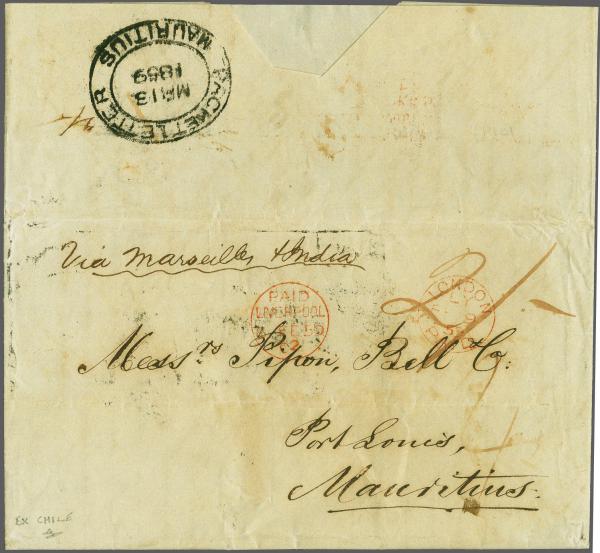 PACKET LETTER
MAURITIUS
MR 13
1859
Via Marseilles & India
2/-
PAID
LIVERPOOL
LONDON
PAID
Messrs Pipon, Bell & Co:
Port Louis,
Mauritius.
EX CHILÉ